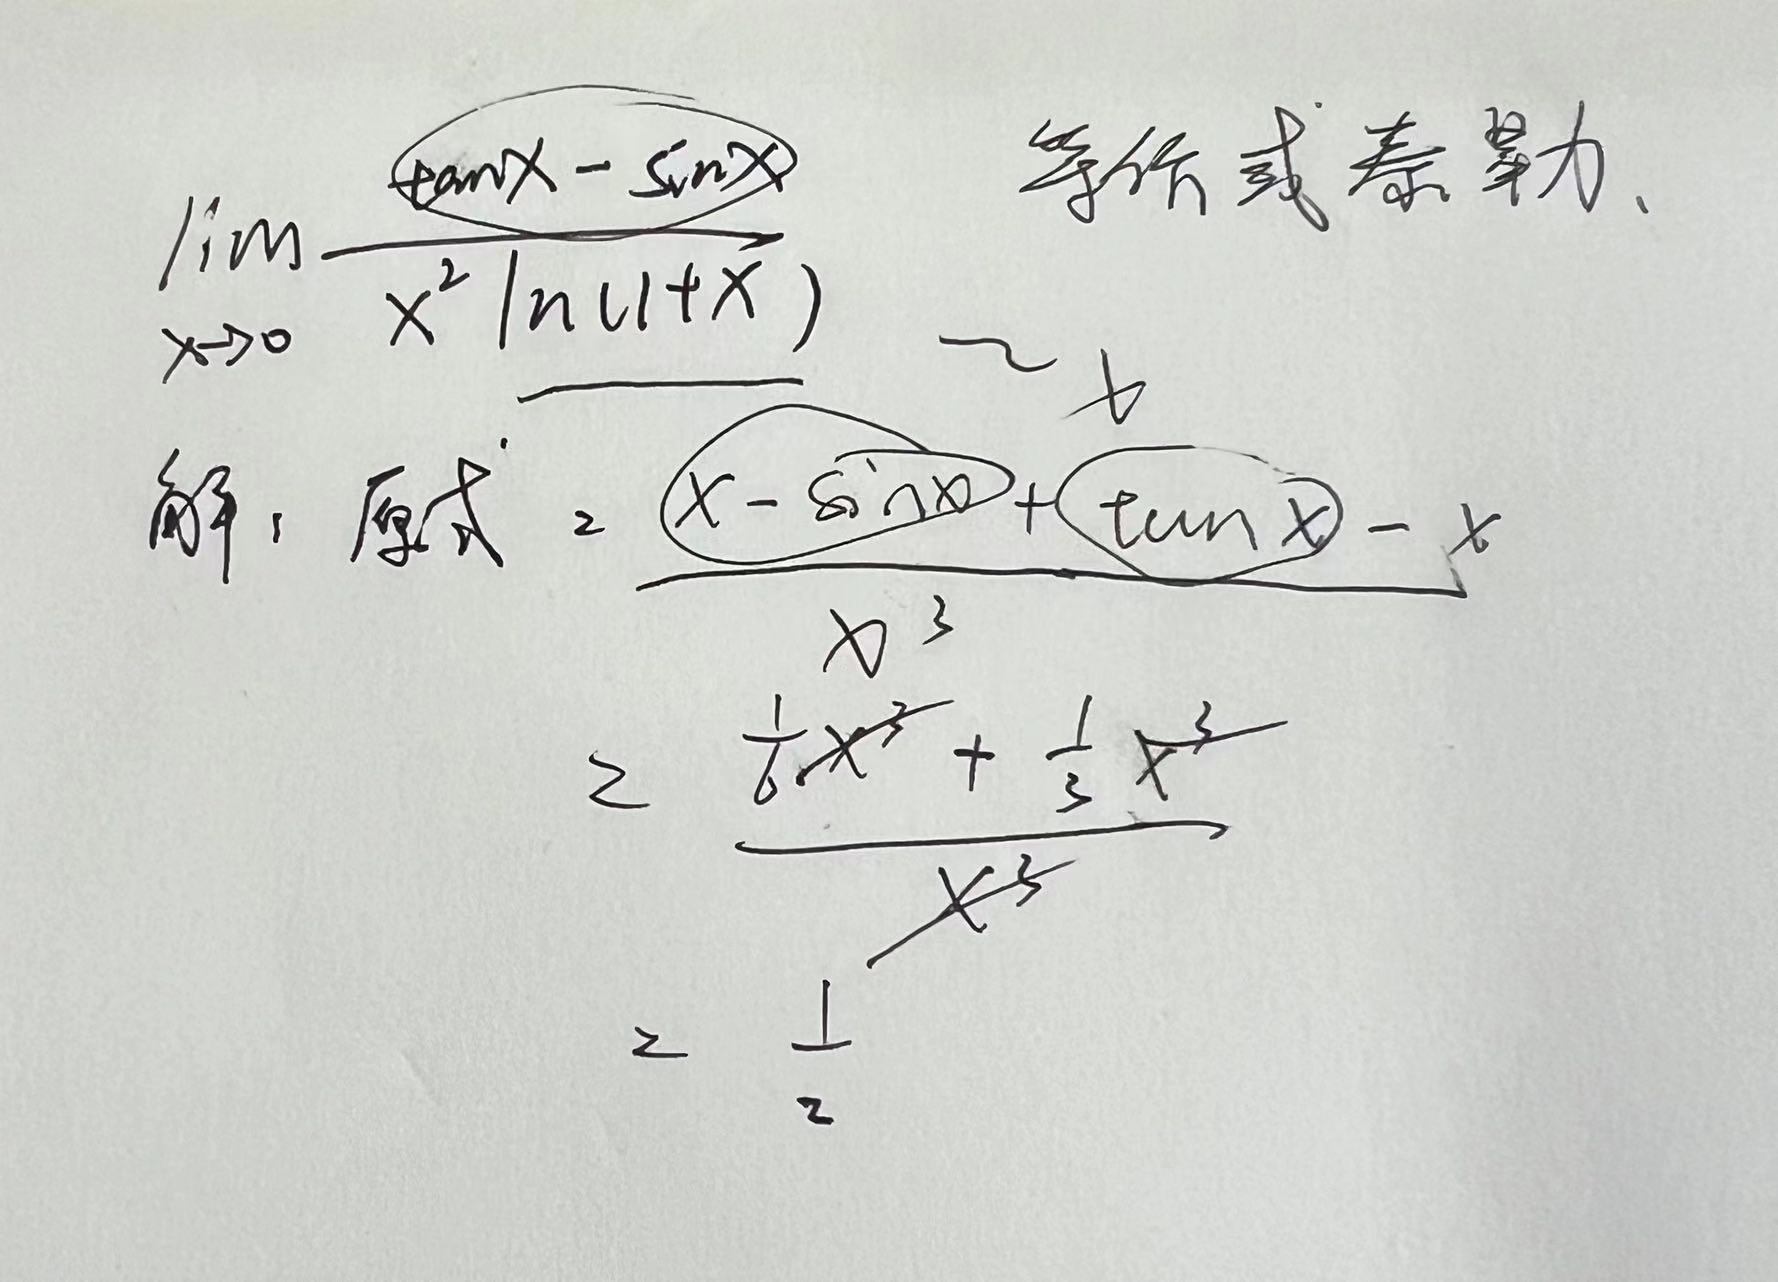 lim x→0 (tanx - sinx) / (x² ln(1+x)) 等价或泰勒、
~ x
解: 原式 = (x - sinx + tanx - x) / x³
= (1/6 x³ + 1/3 x³) / x³
= 1/2